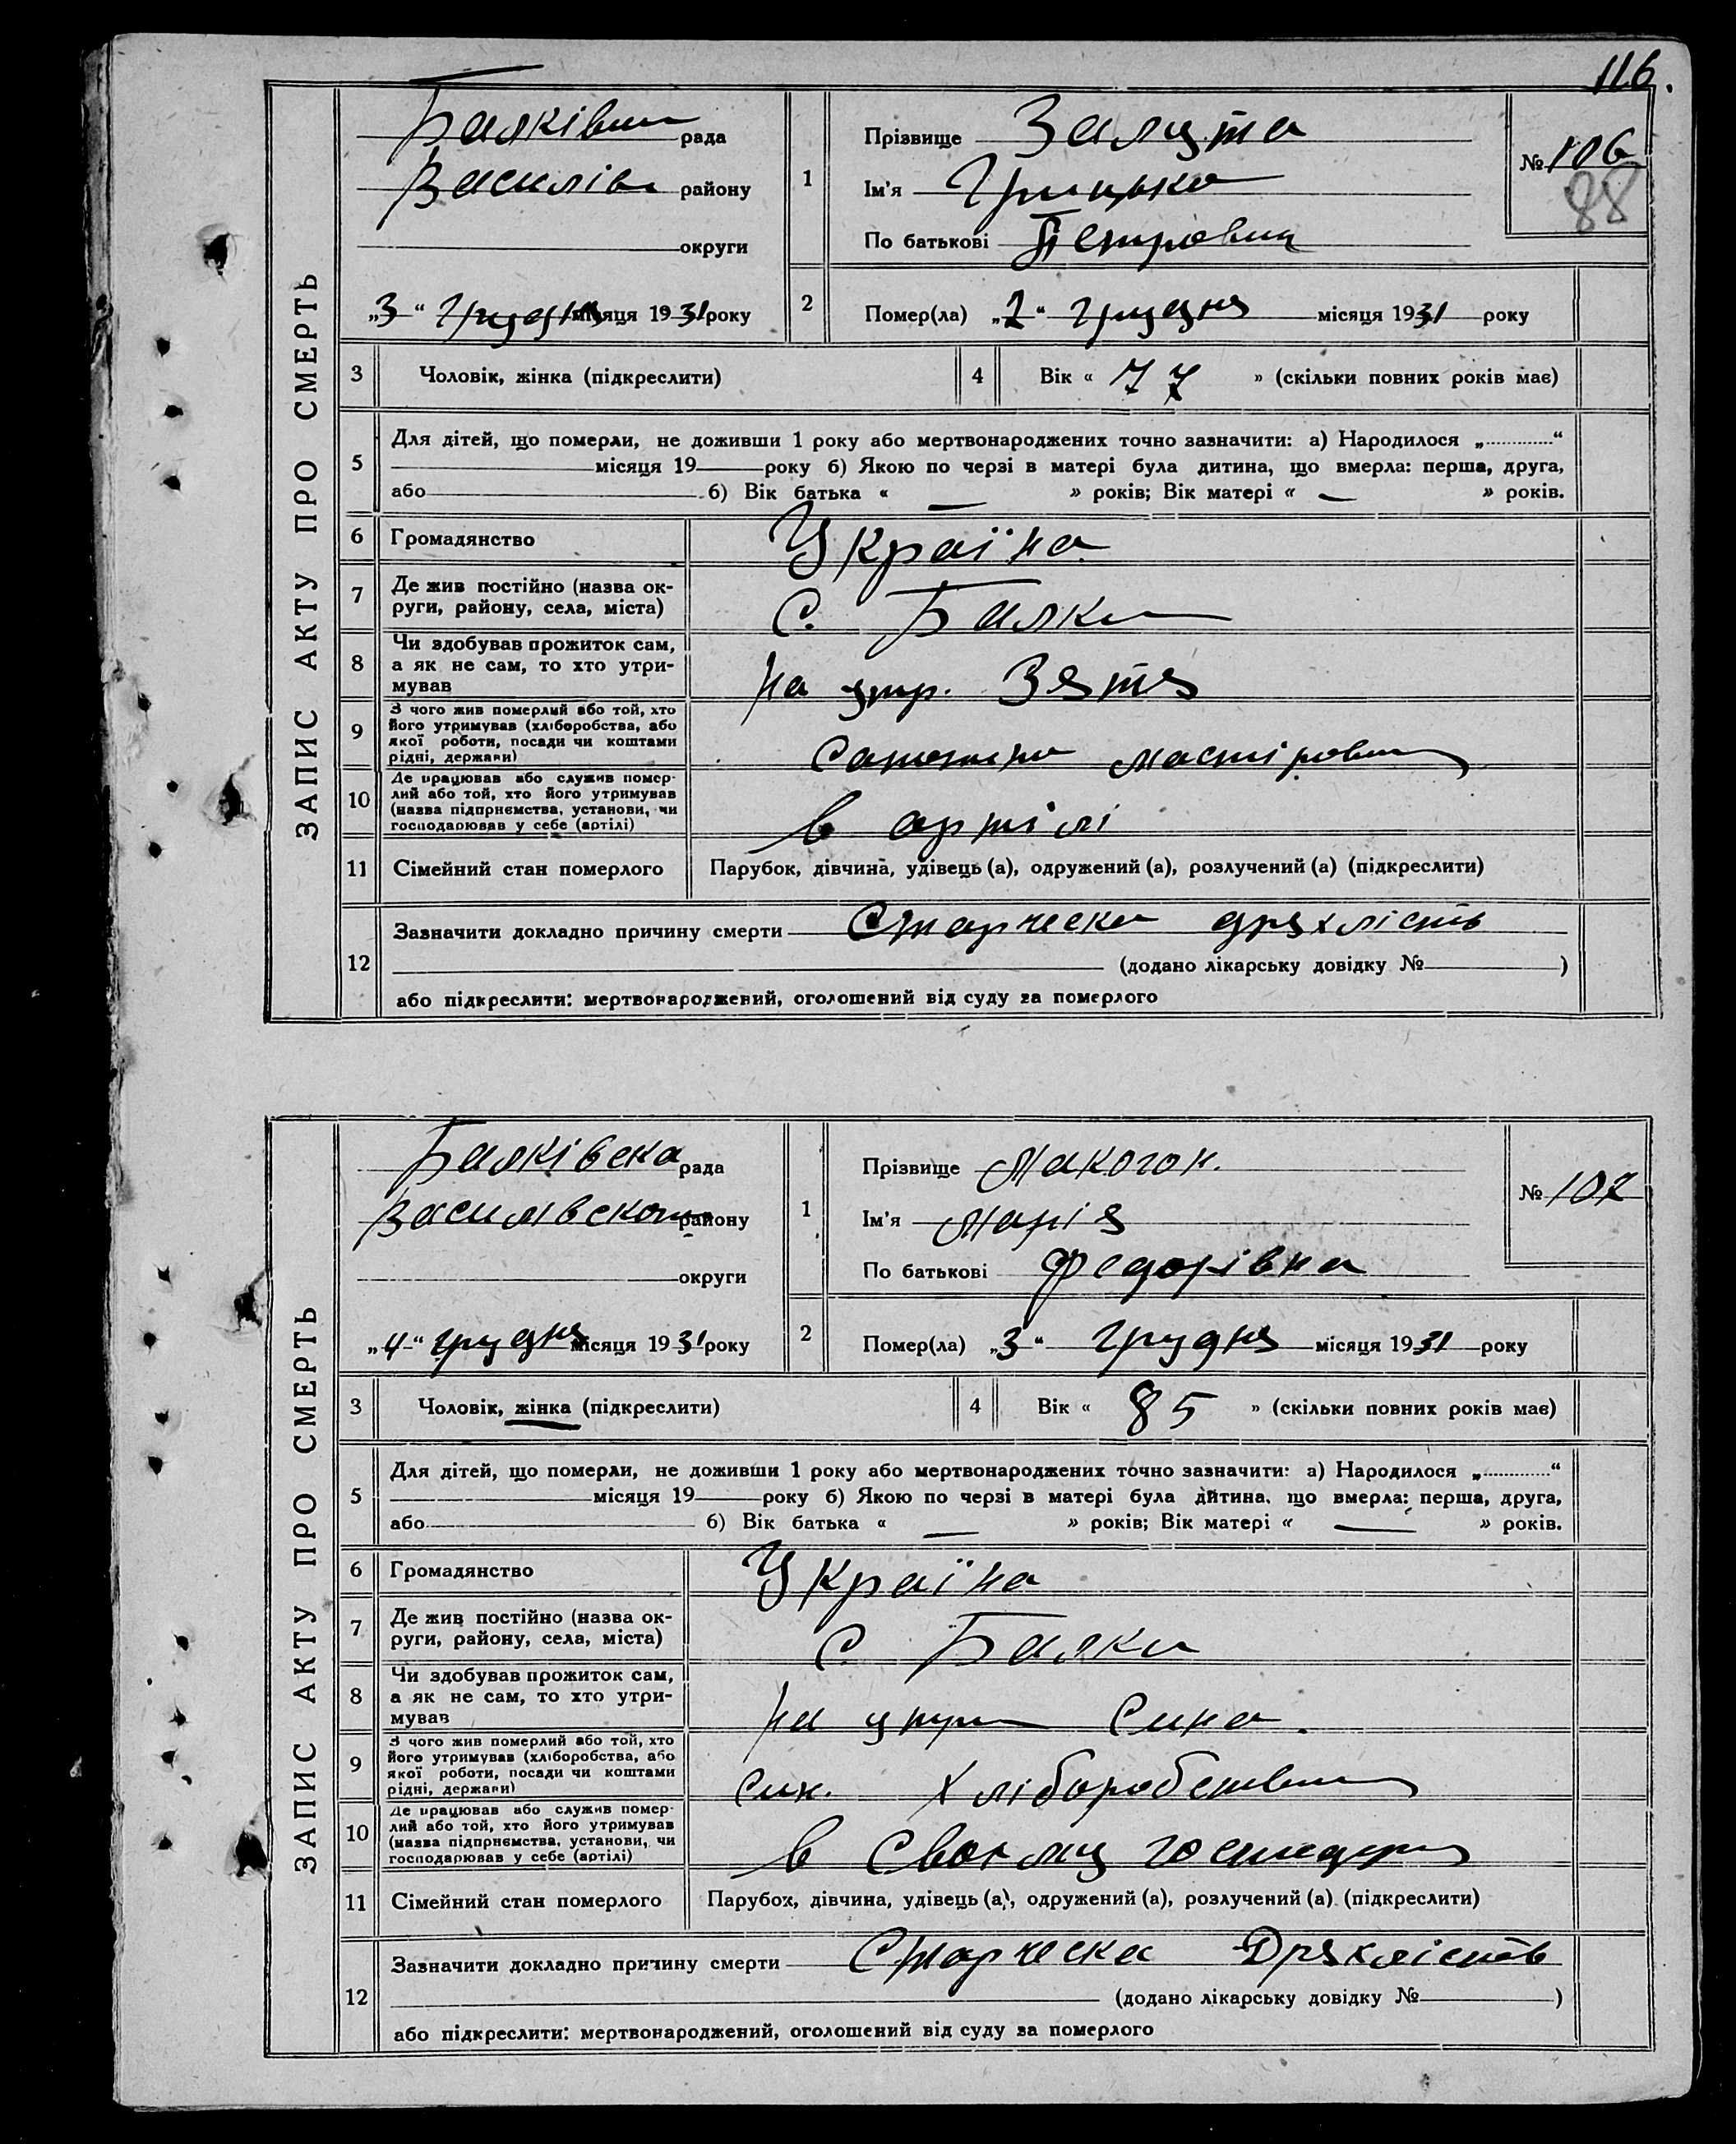 116.
ЗАПИС АКТУ ПРО СМЕРТЬ
Балківськ рада
Василів району
округи
„3“ Грудня місяця 1931 року
1
Прізвище Залута
Ім'я Грицько
По батькові Петрович
№ 106
88
2
Помер(ла) „2“ Грудня місяця 1931 року
3 Чоловік, жінка (підкреслити)
4 Вік « 77 » (скільки повних років має)
5
Для дітей, що померли, не доживши 1 року або мертвонароджених точно зазначити: а) Народилося „ “
місяця 19 року б) Якою по черзі в матері була дитина, що вмерла: перша, друга,
або б) Вік батька « — » років; Вік матері « — » років.
6 Громадянство Україна
7 Де жив постійно (назва ок-
руги, району, села, міста) С. Балки
8 Чи здобував прожиток сам,
а як не сам, то хто утри-
мував на утр. Зятя
9 З чого жив померлий або той, хто
його утримував (хліборобства, або
якої роботи, посади чи коштами
рідні, держави)
10 Де працював або служив помер-
лий або той, хто його утримував
(назва підприємства, установи, чи
господарював у себе (артілі) в артілі
11 Сімейний стан померлого Парубок, дівчина, удівець (а), одружений (а), розлучений (а) (підкреслити)
12
Зазначити докладно причину смерти Старческа дряхлість
(додано лікарську довідку № )
або підкреслити: мертвонароджений, оголошений від суду за померлого
ЗАПИС АКТУ ПРО СМЕРТЬ
Балківська рада
Василівського району
округи
„4“ грудня місяця 1931 року
1
Прізвище Макогон.
Ім'я Марія
По батькові Федорівна
№ 107
2
Помер(ла) „3“ Грудня місяця 1931 року
3 Чоловік, жінка (підкреслити)
4 Вік « 85 » (скільки повних років має)
5
Для дітей, що померли, не доживши 1 року або мертвонароджених точно зазначити: а) Народилося „ “
місяця 19 року б) Якою по черзі в матері була дитина, що вмерла: перша, друга,
або б) Вік батька « — » років; Вік матері « — » років.
6 Громадянство Україна
7 Де жив постійно (назва ок-
руги, району, села, міста) С. Балки
8 Чи здобував прожиток сам,
а як не сам, то хто утри-
мував на утрим Сина.
9 З чого жив померлий або той, хто
його утримував (хліборобства, або
якої роботи, посади чи коштами
рідні, держави) син. Хліборобством
10 Де працював або служив помер-
лий або той, хто його утримував
(назва підприємства, установи, чи
господарював у себе (артілі) в Своєму господар
11 Сімейний стан померлого Парубок, дівчина, удівець (а), одружений (а), розлучений (а) (підкреслити)
12
Зазначити докладно причину смерти Старческа Дряхлість
(додано лікарську довідку № )
або підкреслити: мертвонароджений, оголошений від суду за померлого